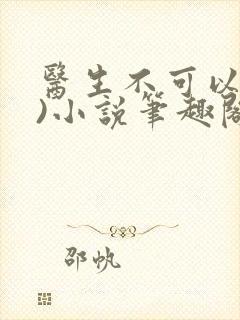 醫生不可以
)小說筆趣閣
邵帆